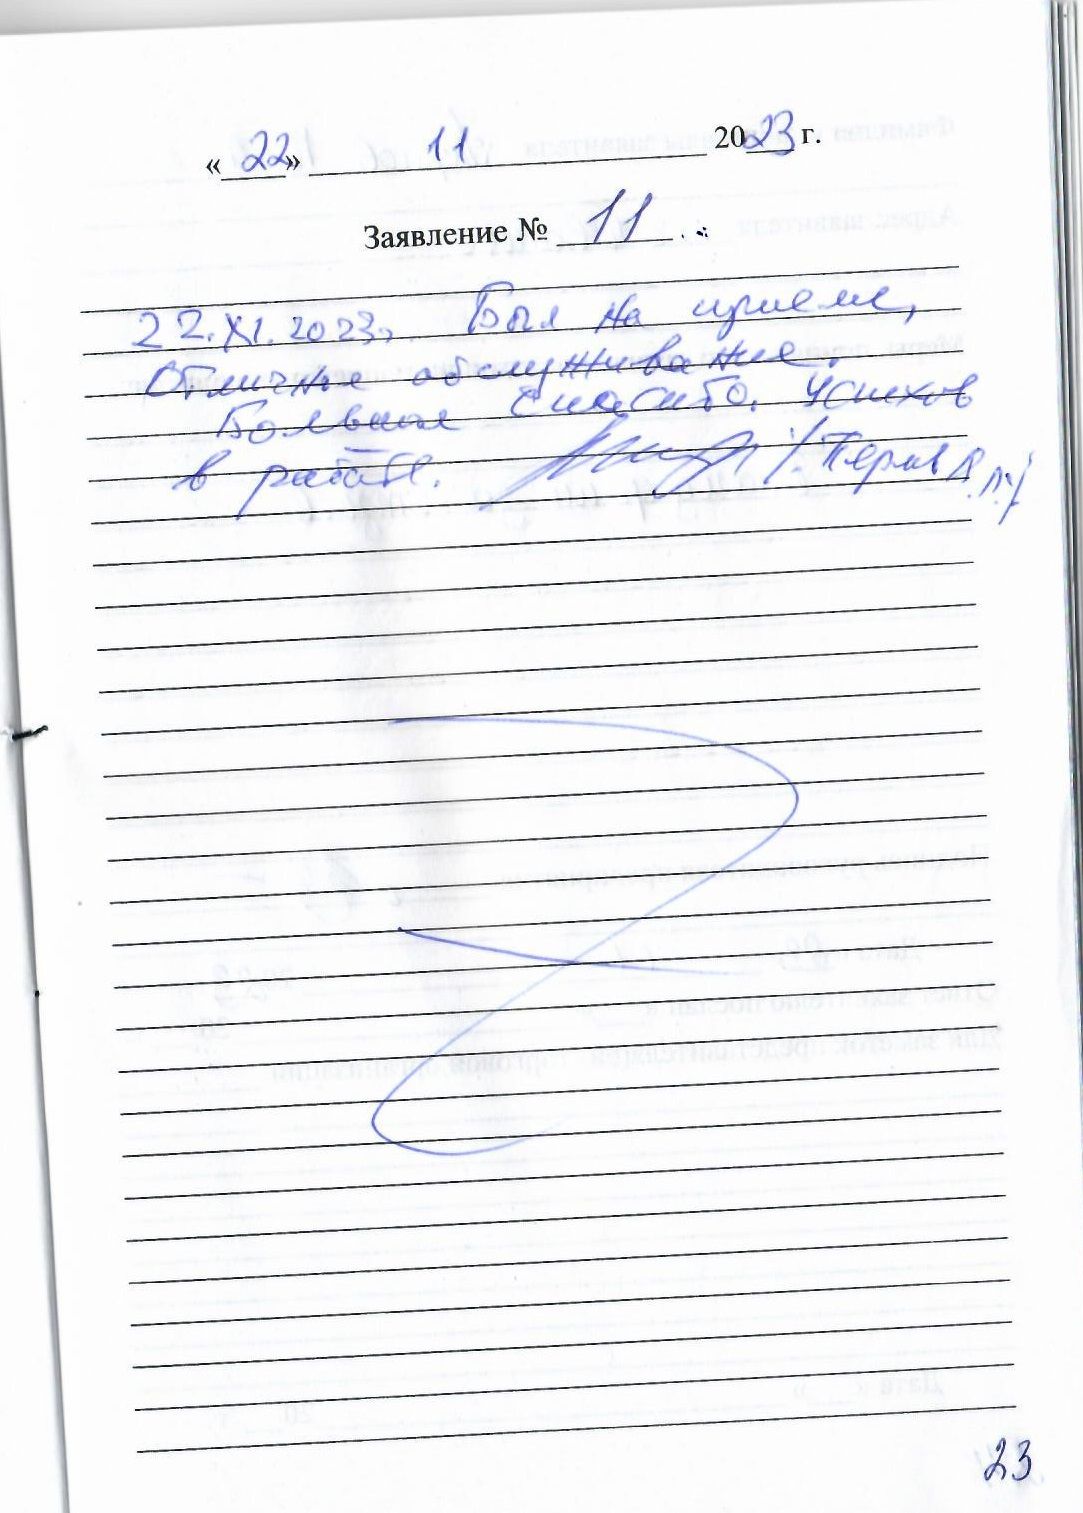 «22» 11 2023 г.
Заявление № 11
22.XI.2023г. Был на приеме,
Отличное обслуживание.
Большое спасибо. Успехов
в работе.
23